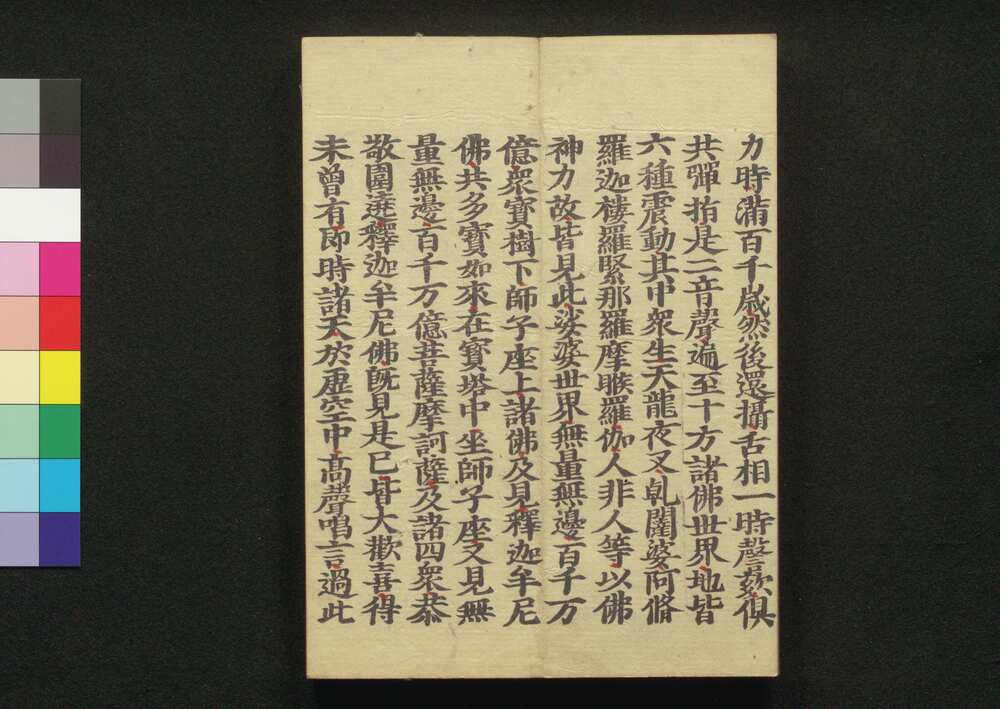 力時滿百千歲然後還攝舌相一時謦欬俱
共彈指是二音聲遍至十方諸佛世界地皆
六種震動其中衆生天龍夜叉乹闥婆阿脩
羅迦樓羅緊那羅摩睺羅伽人非人等以佛
神力故皆見此娑婆世界無量無邊百千万
億衆寶樹下師子座上諸佛及見釋迦牟尼
佛共多寶如來在寶塔中坐師子座又見無
量無邊百千万億菩薩摩訶薩及諸四衆恭
敬圍遶釋迦牟尼佛旣見是已皆大歡喜得
未曾有即時諸天於虛空中高聲唱言過此